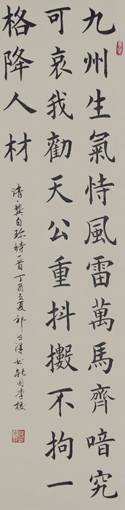 九州生氣恃風雷萬馬齊喑究
可哀我勸天公重抖擻不拘一
格降人材
清·龔自珍詩一首丁酉立夏